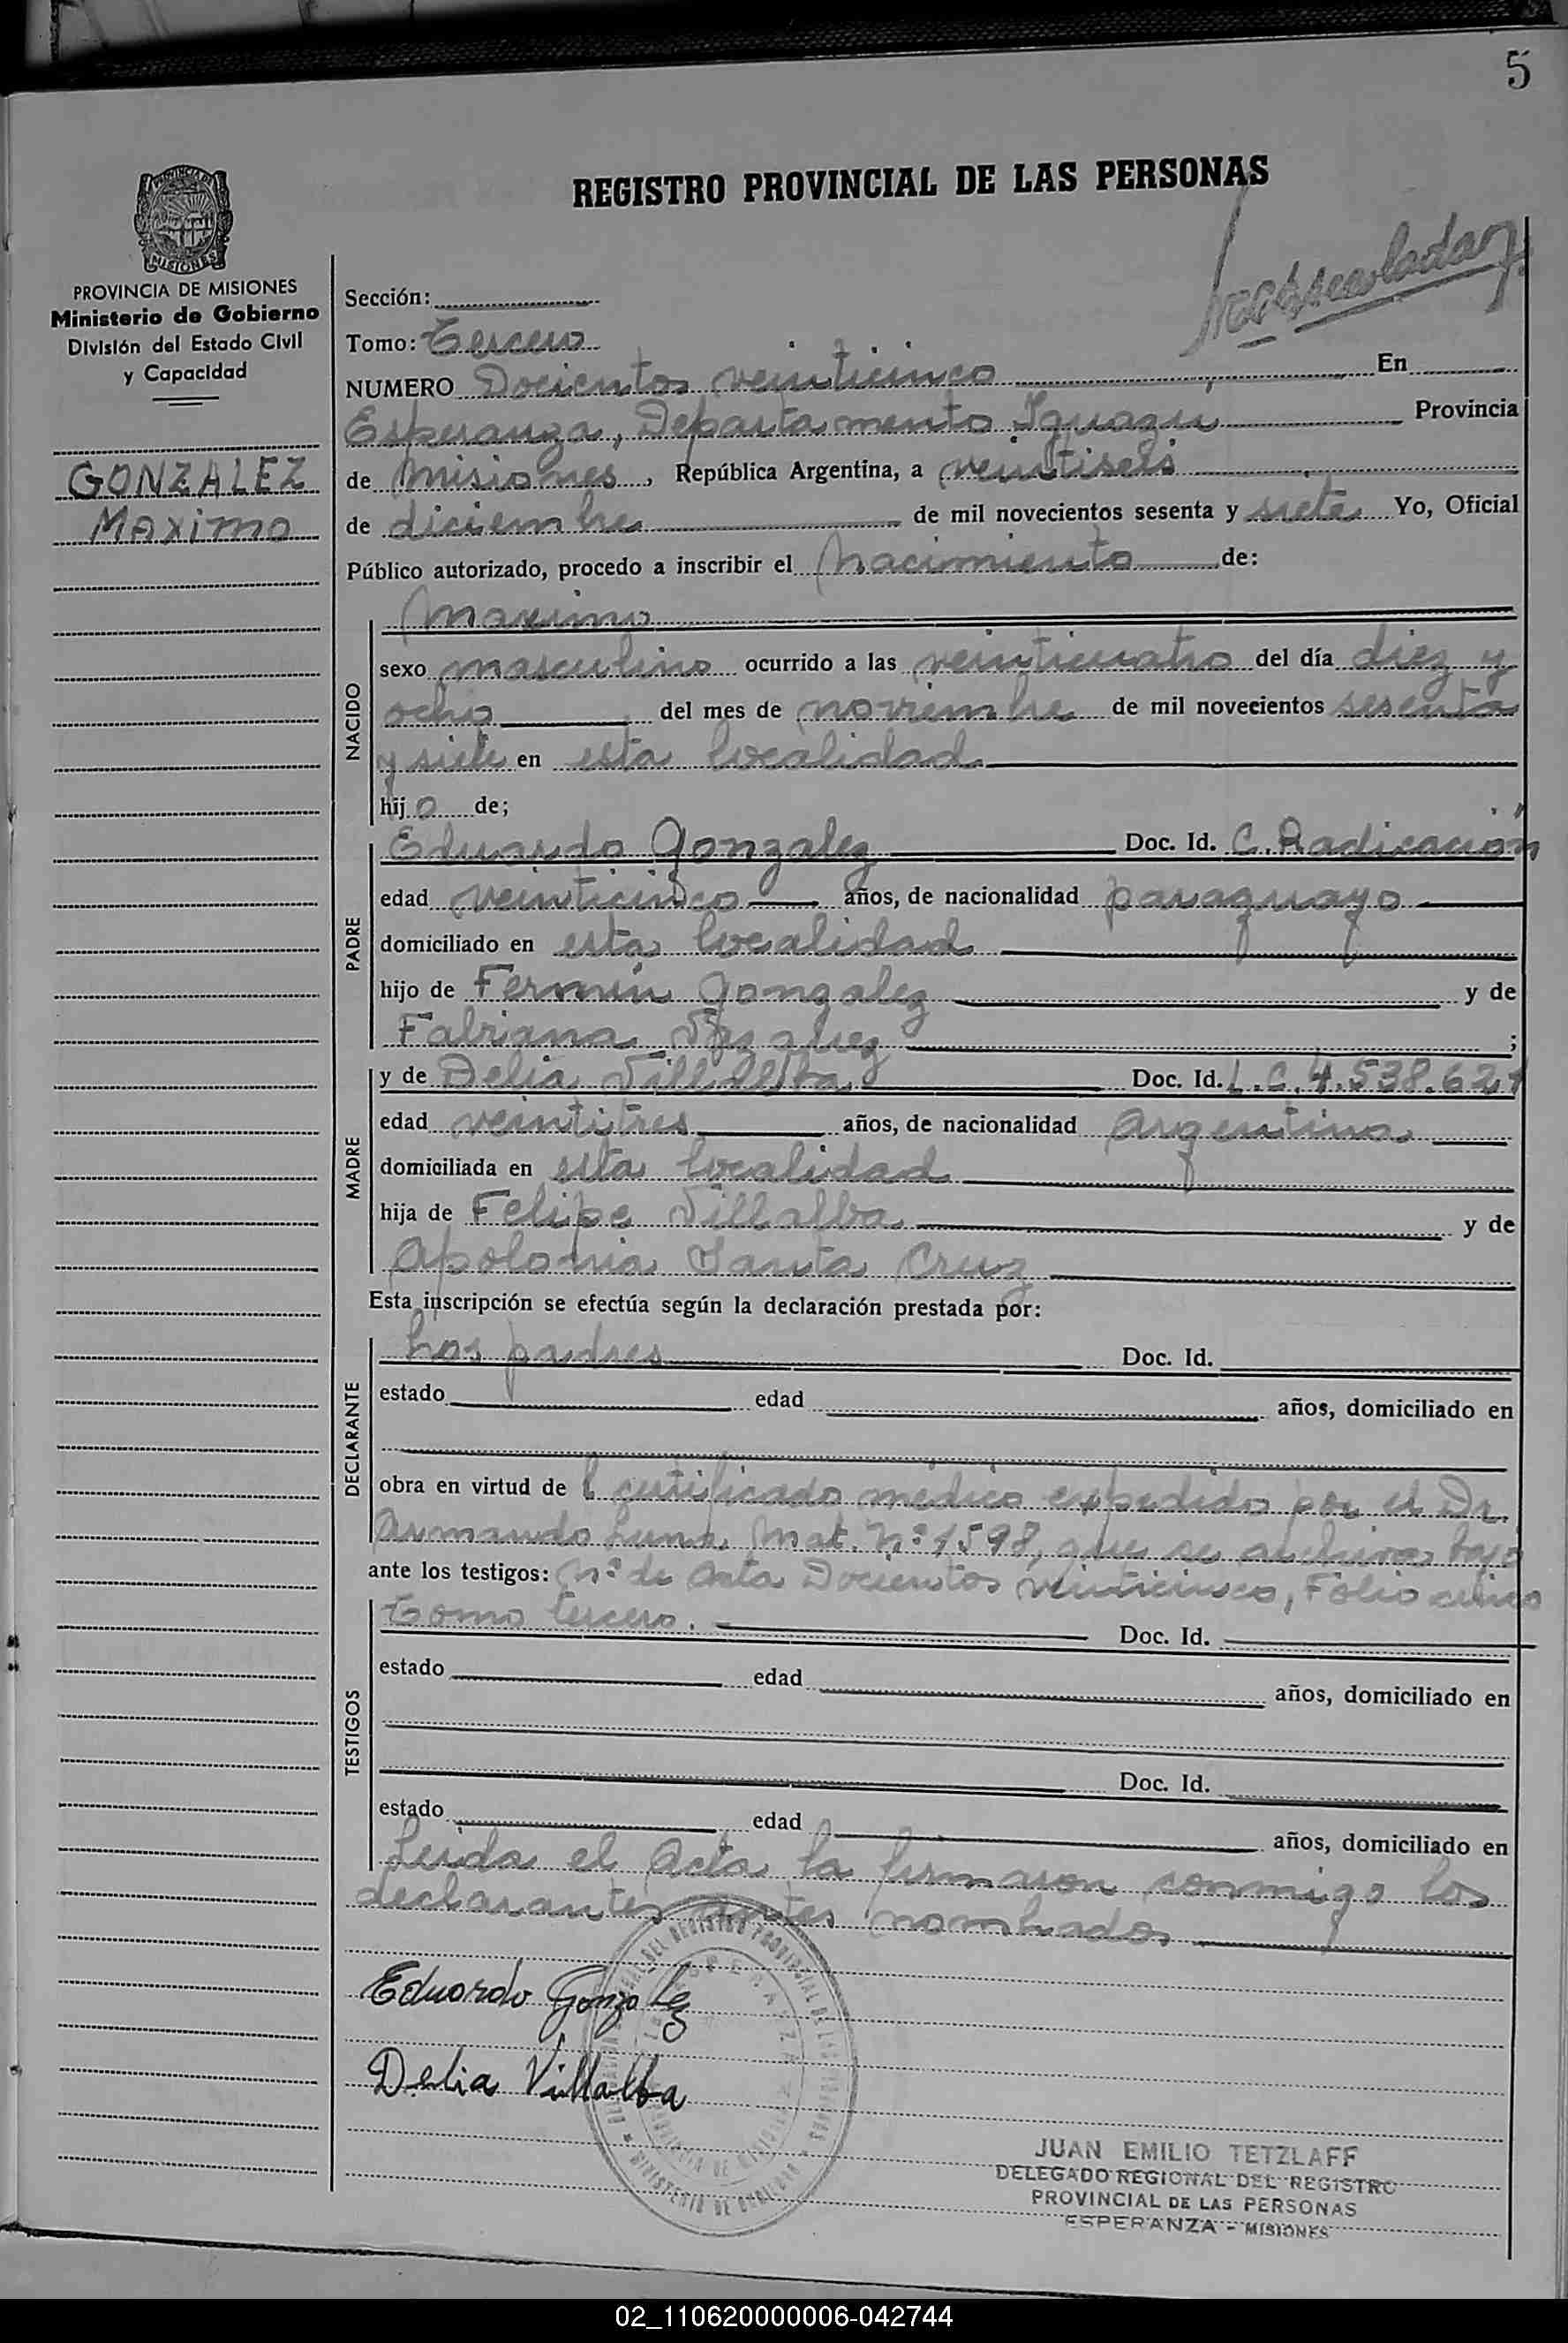 5
REGISTRO PROVINCIAL DE LAS PERSONAS
PROVINCIA DE
MISIONES
PROVINCIA DE MISIONES
Ministerio de Gobierno
División del Estado Civil
y Capacidad
GONZALEZ
MAXIMO
Sección:
Tomo: Tercero
NUMERO Docientos veinticinco En
Esperanza, Departamento Iguazú Provincia
de Misiones, República Argentina, a veintiseis
de diciembre de mil novecientos sesenta y siete Yo, Oficial
Público autorizado, procedo a inscribir el Nacimiento de:
NACIDO
Maximo
sexo masculino ocurrido a las veinticuatro del día diez y
ocho del mes de noviembre de mil novecientos sesenta
y siete en esta localidad
hijo de;
PADRE
Eduardo Gonzalez Doc. Id. C. Radicación
edad veinticinco años, de nacionalidad paraguayo
domiciliado en esta localidad
hijo de Fermín Gonzalez y de
Fabriana ;
MADRE
y de Delia Villalba Doc. Id. L.C. 4.538.621
edad veintitres años, de nacionalidad Argentina
domiciliada en esta localidad
hija de Felipe Villalba y de
Apolonia Santa Cruz
Esta inscripción se efectúa según la declaración prestada por:
DECLARANTE
Los padres Doc. Id.
estado edad años, domiciliado en
obra en virtud del certificado médico expedido por el Dr.
Armando Luna Mat. Nº 1598, que se archiva bajo
ante los testigos: Nº de Acta Docientos veinticinco, Folio cinco
TESTIGOS
Tomo tercero. Doc. Id.
estado edad años, domiciliado en
Doc. Id.
estado edad años, domiciliado en
Leida el Acta la firmaron conmigo los
declarantes antes nombrados
Eduardo Gonzalez
Delia Villalba
JUAN EMILIO TETZLAFF
DELEGADO REGIONAL DEL REGISTRO
PROVINCIAL DE LAS PERSONAS
ESPERANZA - MISIONES
02_110620000006-042744